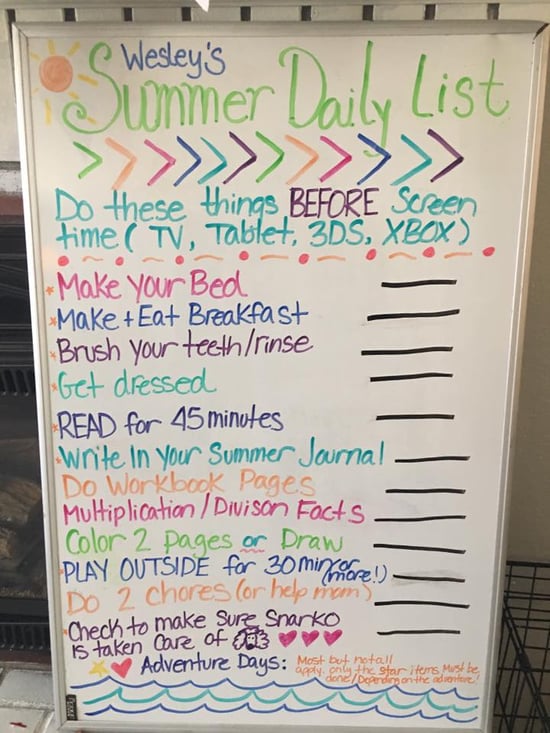 Wesley's
Summer Daily List
Do these things BEFORE Screen
time ( TV, Tablet, 3DS, XBOX )
Make Your Bed
Make + Eat Breakfast
Brush your teeth/rinse
Get dressed
READ for 45 minutes
Write In Your Summer Journal
Do Workbook Pages
Multiplication / Divison Facts
Color 2 pages or Draw
PLAY OUTSIDE for 30 min (or more!)
Do 2 chores (or help mom)
Check to make Sure Snarko
is taken Care of
Adventure Days: Most but not all
apply. only the star items Must be
done/Depending on the adventure!